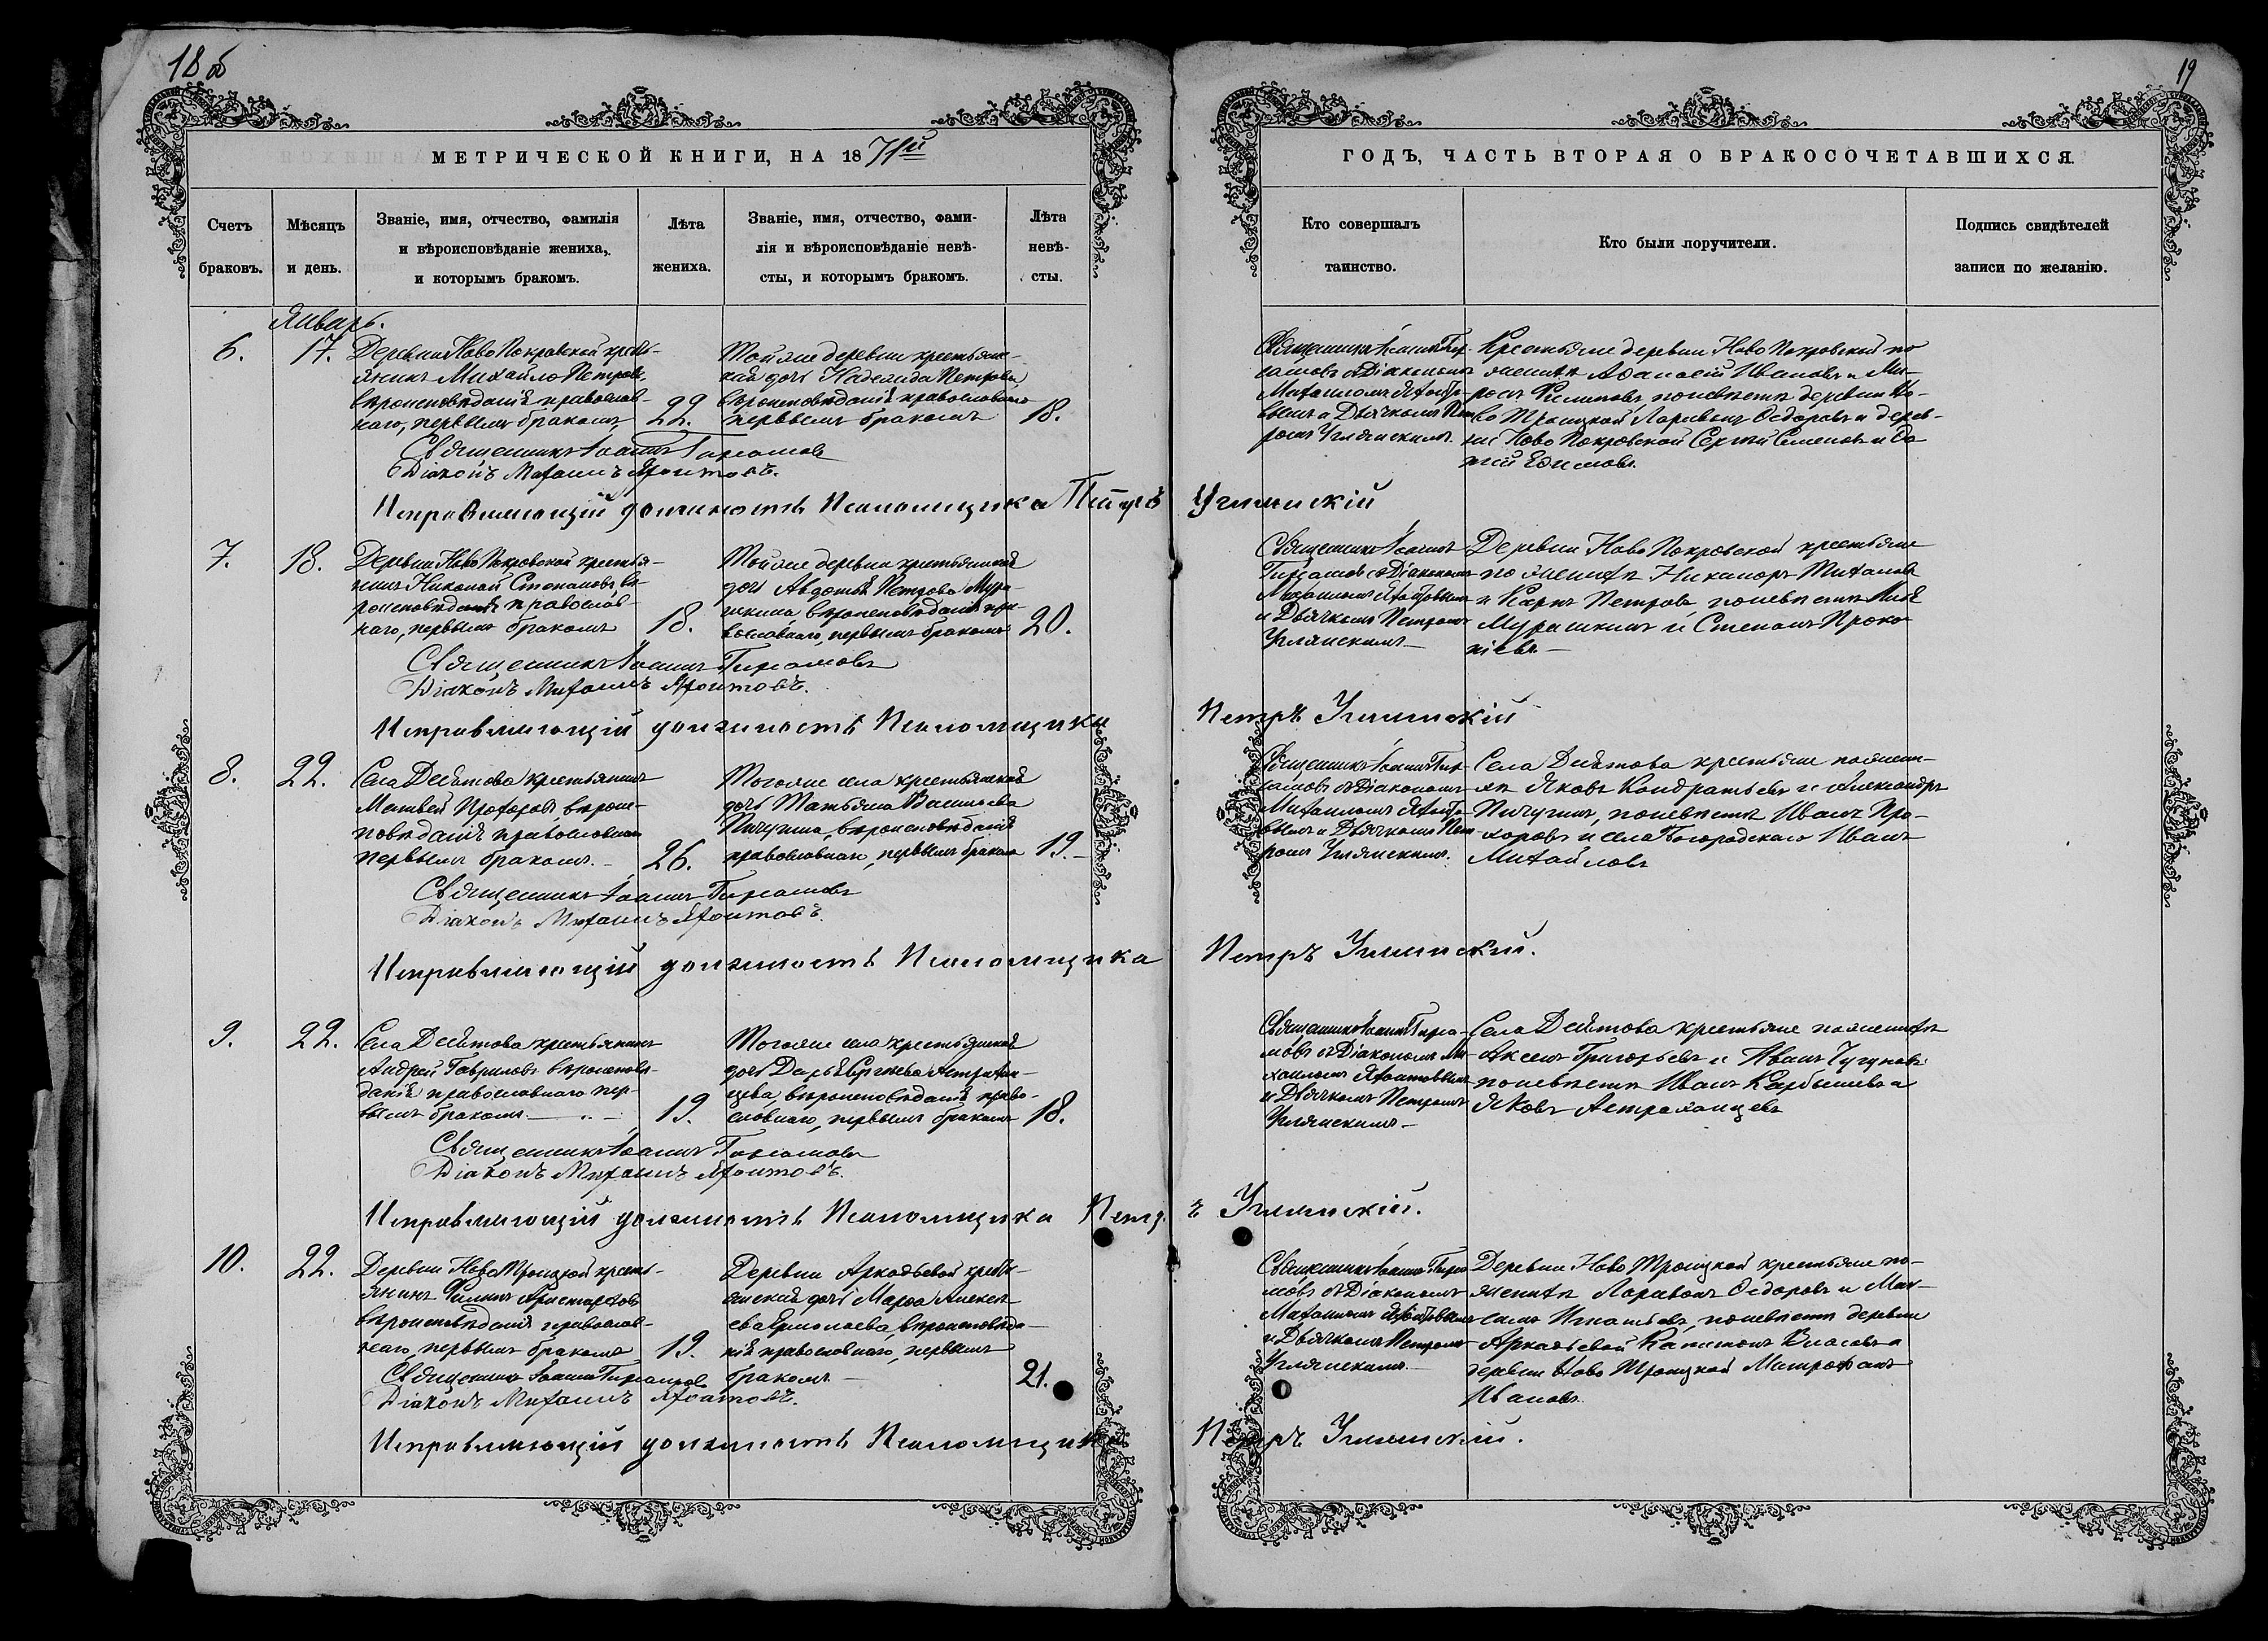 18 об
19
МЕТРИЧЕСКОЙ КНИГИ, НА 1871й
ГОДЪ, ЧАСТЬ ВТОРАЯ О БРАКОСОЧЕТАВШИХСЯ.
Счетъ браковъ.
Мѣсяцъ и день.
Званіе, имя, отчество, фамилія
и вѣроисповѣданіе жениха,
и которымъ бракомъ.
Лѣта жениха.
Званіе, имя, отчество, фами-
лія и вѣроисповѣданіе невѣ-
сты, и которымъ бракомъ.
Лѣта невѣ-
сты.
Кто совершалъ
таинство.
Кто были поручители.
Подпись свидѣтелей
записи по желанію.
Январь.
6.
17.
Деревни Ново Покровской кресть-
янинъ Михайло Петровъ,
вѣроисповѣданія православ-
наго, первымъ бракомъ
22.
Тойже деревни крестьянс-
кая дочь Надежда Петрова,
вѣроисповѣданія православнаго
первымъ бракомъ
18.
Священникъ Іоаннъ
съ Діакономъ
Михаиломъ
и Дьячкомъ Пет-
ромъ Углянскимъ.
Крестьяне деревни Ново Покровской по
женихѣ Аѳанасій Ивановъ и Ми-
ронъ Филиповъ, по невѣстѣ деревни Но-
во Троицкой Ларивонъ Ѳедоровъ и дерев-
ни Ново Покровской Сергѣй Семеновъ и
Ефимовъ.
Священникъ Іоаннъ
Діаконъ Михаилъ
Исправляющій должность Псаломщика Петръ Углянскій
7.
18.
Деревни Ново Покровской крестья-
нинъ Николай Степановъ, вѣ-
роисповѣданія православ-
наго, первымъ бракомъ
18.
Тойже деревни крестьянская
дочь Авдотья Петрова Мура-
шкина, вѣроисповѣданія пра-
вославнаго, первымъ бракомъ
20.
Священникъ Іоаннъ
съ Діакономъ
Михаиломъ
и Дьячкомъ Петромъ
Углянскимъ
Деревни Ново Покровской крестьяне
по женихѣ Никаноръ
и Карпъ Петровъ, по невѣстѣ
Мурашкинъ и Степанъ Проко-
піевъ.
Священникъ Іоаннъ
Діаконъ Михаилъ
Исправляющій должность Псаломщика
Петръ Углянскій
8.
22.
Села Девятова крестьянинъ
Матвей Прохоровъ, вѣроис-
повѣданія православнаго
первымъ бракомъ.
26.
Тогоже села крестьянская
дочь Татьяна Васильева
Пичугина, вѣроисповѣданія
православнаго, первымъ бракомъ
19.
Священникъ Іоаннъ
съ Діакономъ
Михаиломъ
и Дьячкомъ Пет-
ромъ Углянскимъ.
Села Девятова крестьяне по жени-
хѣ Яковъ Кондратьевъ и Александръ
Пичугинъ, по невѣстѣ Иванъ Про-
хоровъ и села Богородскаго Иванъ
Михайловъ
Священникъ Іоаннъ
Діаконъ Михаилъ
Исправляющій должность Псаломщика
Петръ Углянскій.
9.
22.
Села Девятова крестьянинъ
Андрей Гавриловъ вѣроисповѣ-
данія православнаго пер-
вымъ бракомъ
19.
Тогоже села крестьянская
дочь Дарья Сергѣева Астрахан-
цева, вѣроисповѣданія право-
славнаго, первымъ бракомъ
18.
Священникъ Іоаннъ
съ Діакономъ Ми-
хаиломъ
и Дьячкомъ Петромъ
Углянскимъ
Села Девятова крестьяне по женихѣ
Григорьевъ и Иванъ Чугуновъ
по невѣстѣ Иванъ Карбышевъ и
Яковъ Астраханцевъ
Священникъ Іоаннъ
Діаконъ Михаилъ
Исправляющій должность Псаломщика Петръ Углянскій.
10.
22.
Деревни Ново Троицкой кресть-
янинъ Филипъ Аристарховъ
вѣроисповѣданія православ-
наго, первымъ бракомъ
19.
Деревни Аркадьевой кресть-
янская дочь Марѳа Алексѣ-
ева Ермолаева, вѣроисповѣда-
нія православнаго, первымъ
бракомъ
21.
Священникъ Іоаннъ
съ Діакономъ
Михаиломъ
и Дьячкомъ Петромъ
Углянскимъ
Деревни Ново Троицкой крестьяне по
женихѣ Ларивонъ Ѳедоровъ и Мак-
симъ Игнатьевъ, по невѣстѣ деревни
Аркадьевой Капитонъ Власовъ и
деревни Ново Троицкой Митрофанъ
Ивановъ.
Священникъ Іоаннъ
Діаконъ Михаилъ
Исправляющій должность Псаломщика
Петръ Углянскій.